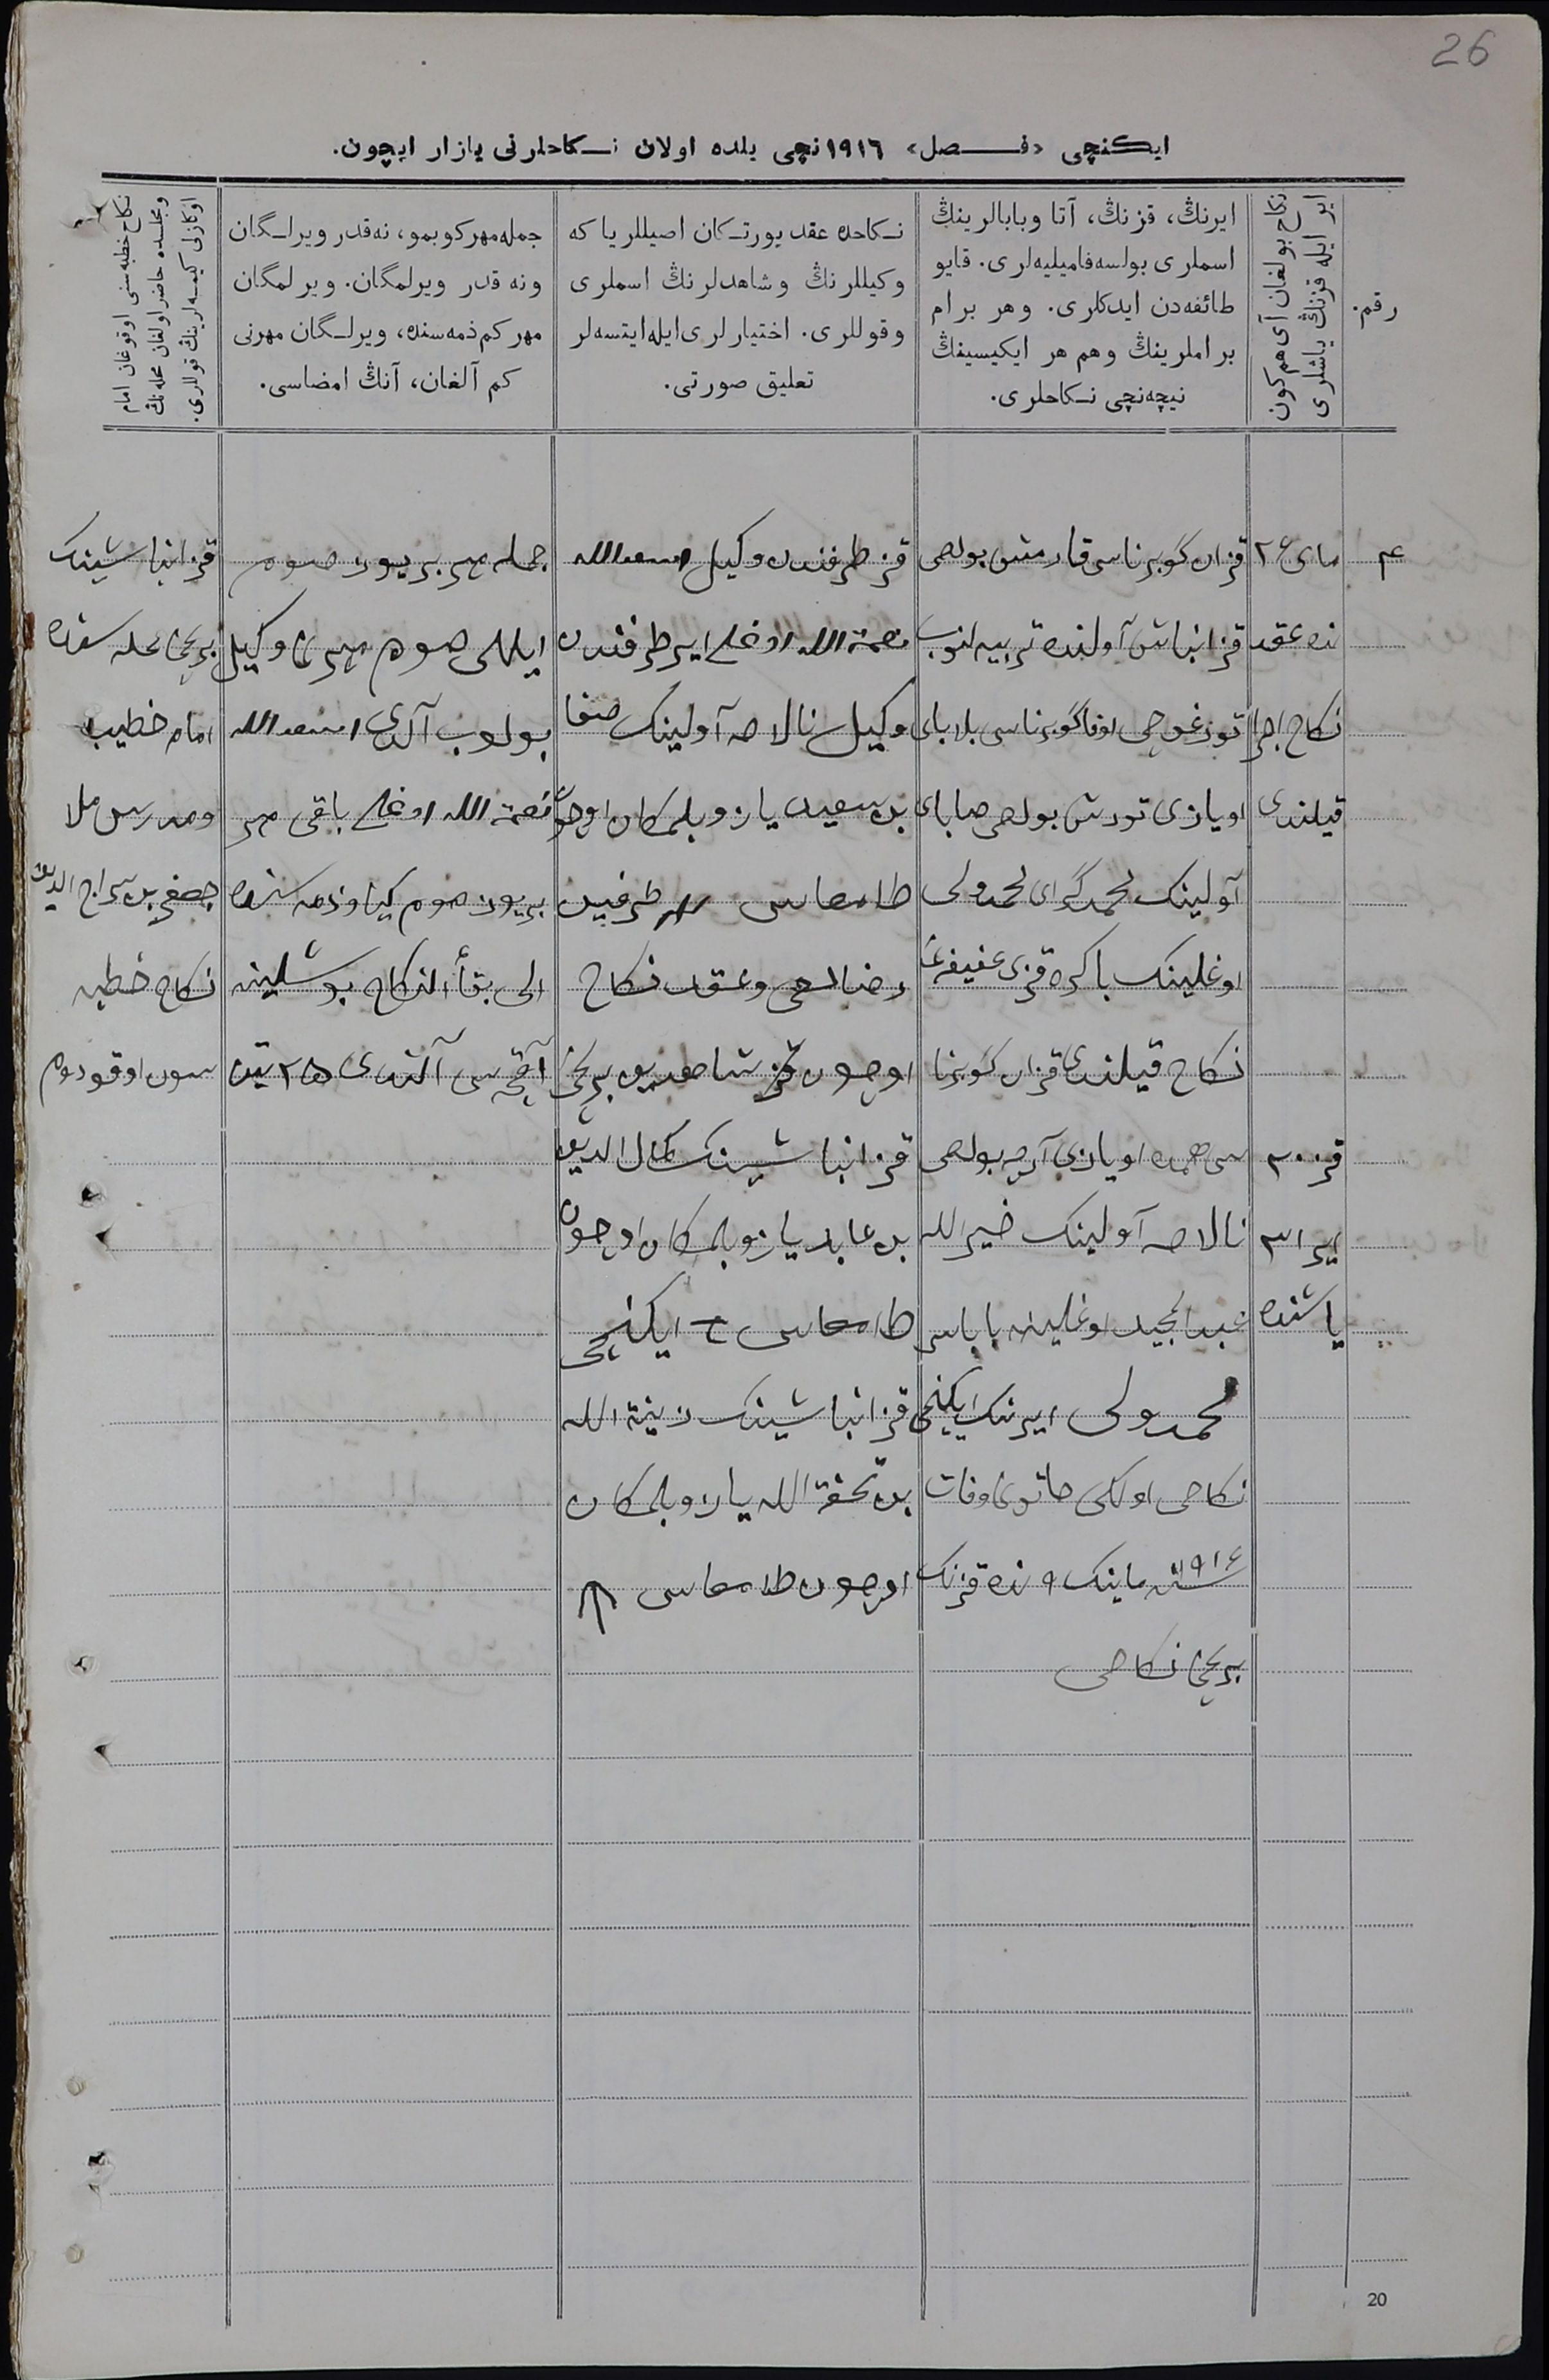 26
ایکنچی «فصل» ١٩١٦نچی یلده اولان نکاحلرنی یازار ایچون.
رقم.
نکاح بولغان آی هم کون
ایر ایله قزنڭ یاشلری
ایرنڭ، قزنڭ، آتا وبابالرینڭ
اسملری بولسه فامیلیه‌لری. قایو
طائفه‌دن ایدکلری. وهر برام
براملرینڭ وهم هر ایکیسینڭ
نیچه‌نچی نکاحلری.
نکاحده عقد یورتکان اصیللر یا که
وکیللرنڭ وشاهدلرنڭ اسملری
وقوللری. اختیارلری ایله ایتسه‌لر
تعلیق صورتی.
جمله مهر کوبمو، نه‌قدر ویرلگان
ونه قدر ویرلمگان. ویرلمگان
مهر کم ذمه‌سنده، ویرلگان مهرنی
کم آلغان، آنڭ امضاسی.
نکاح خطبه سنی اوقوغان امام
ومجلسده حاضر اولغان محله‌نڭ
اوکازلی کیمسه‌لرینڭ قوللری.
٤
مای ٢٤
نده عقد
نکاح اجرا
قیلندی
قز ٢٠
ایر ٣١
یاشنده
قزان گوبرناسی قارمش بولصی
قزانباش آولنده تربیه‌لنوب
توزغوچی اوفا گوبرناسی بلابای
اویازی تورش بولصی صابای
آولینک محمدگرای محمدولی
اوغلینک باکره قزی عفیفه‌غا
نکاح قیلندی قزان گوبرنا
سی همده اویازی آرچه بولصی
نالاصه آولینک خیرالله
عبدالمجید اوغلینه باباسی
محمدولی ایرنک ایکنچی
نکاحی اولکی خاتونی وفات
١٩١٤ سنه ماینک ٩ نده قزنک
برنچی نکاحی
قز طرفندن وکیل اسعدالله
نعمة الله اوغلی ایر طرفندن
وکیل نالاصه آولینک صفا
بن سعید یازو بلمکان اوچون
طامغاسی طرفین
رضالغی وعقد نکاح
اوچون قز شاهدین برنچی
قزانباشینک کمال الدین
بن عابد یازو بلمکان اوچون
طامغاسی ایکنچی
قزانباشینک زینة الله
بن تحفة الله یازو بلمکان
اوچون طامغاسی
جمله مهر بر یوز صوم
ایللی صوم مهرنی وکیل
بولوب آلدی اسعدالله
نعمة الله اوغلی باقی مهر
بر یوز صوم کیاو ذمه سنده
الی بقأ النکاح بو شلینه
آقچه سی آلندی ٢٥ تین
قزانباشینک
برنچی محله سنده
امام خطیب
ومدرس ملا
جعفر بن سراج الدین
نکاح خطبه
سون اوقودوم
20